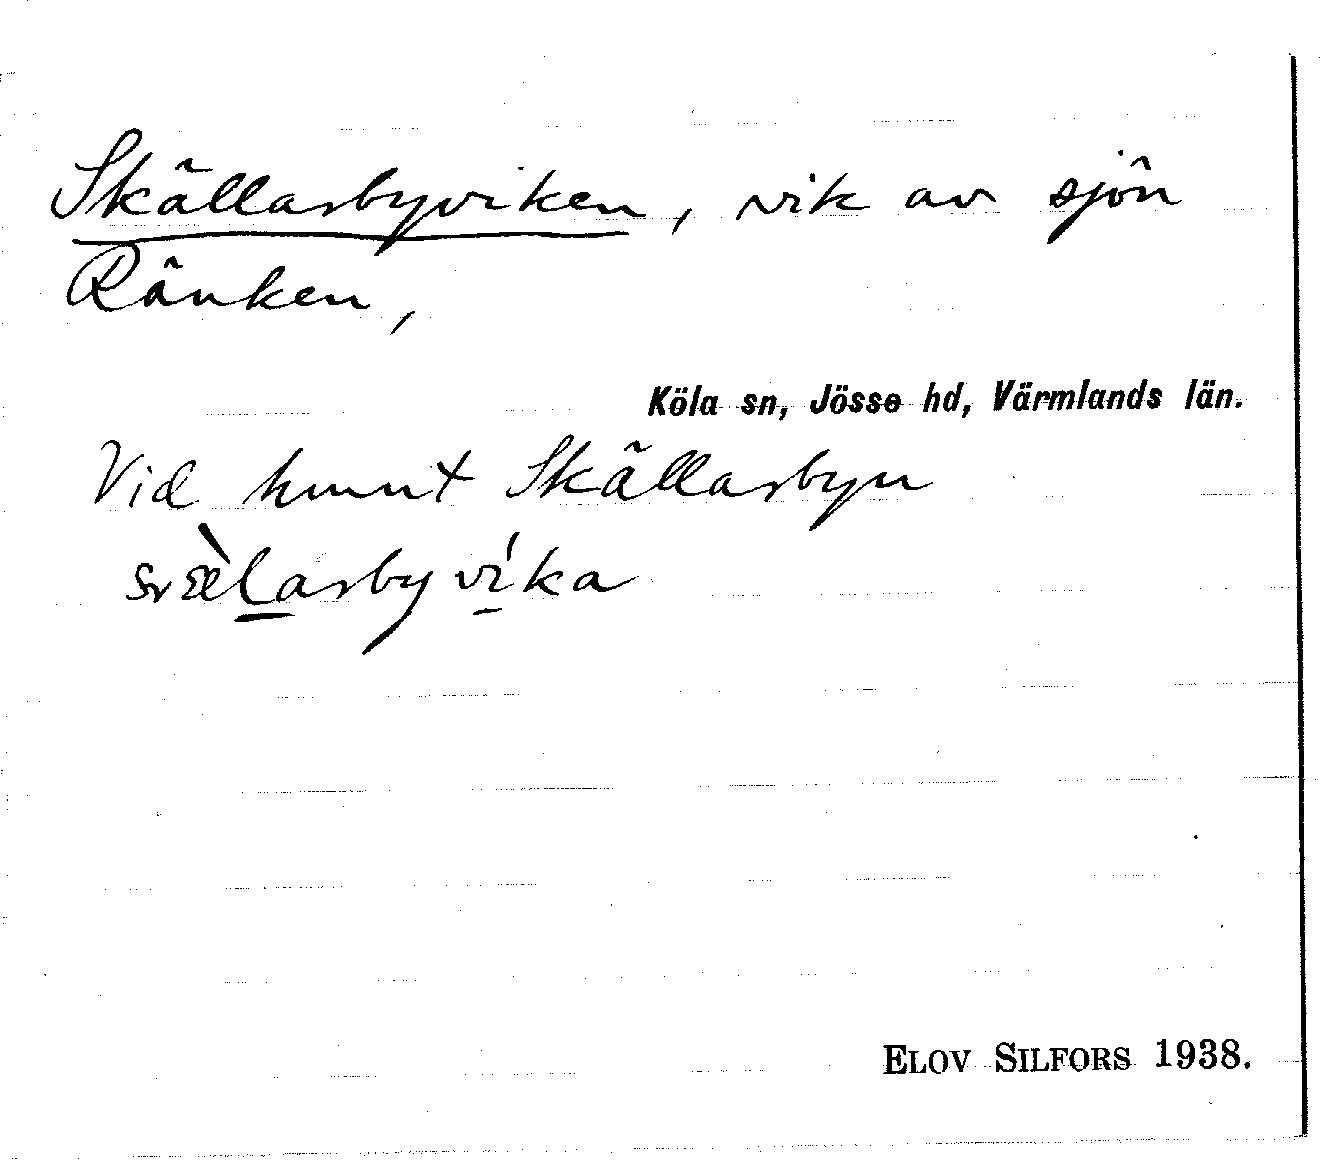 Skällarbyviken, vik av sjön
Ränken,
Köla sn, Jösse hd, Värmlands län.
Vid hmnt Skällarbyn
ELOV SILFORS 1938.